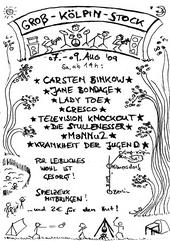 GROß-KÖLPIN-STOCK
07.-09. AUG '09
Sa. ab 11h:
★ CARSTEN BINKOW ★
★ JANE BONDAGE ★
★ LADY TOE ★
★ CRESCO ★
★ TELEVISION KNOCKOUT ★
★ DIE STULLENESSER ★
★ MoNNu2 ★
★ KRANKHEIT DER JUGEND ★
FÜR LEIBLICHES
WOHL IST
GESORGT!
SPIELZEUG
MITBRINGEN!
...und 2€ für den Hut!